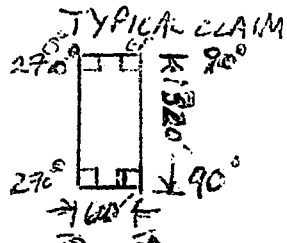 TYPICAL CLAIM
270° 90°
1320'
270° 90°
600'